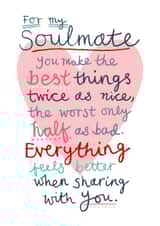 For my
Soulmate
you make the
best things
twice as nice,
the worst only
half as bad.
Everything
feels better
when sharing
with you.